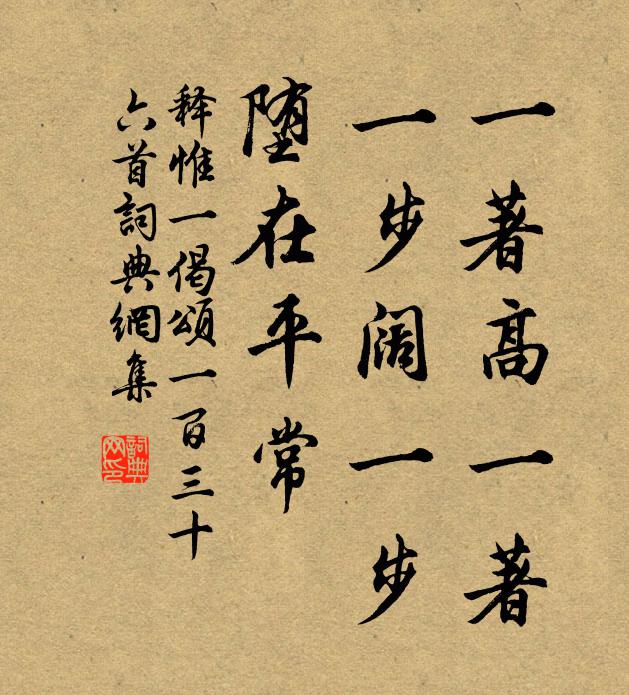 一著高一著
一步阔一步
堕在平常
释惟一偈頌一百三十
六首詞典網集
詞典网印